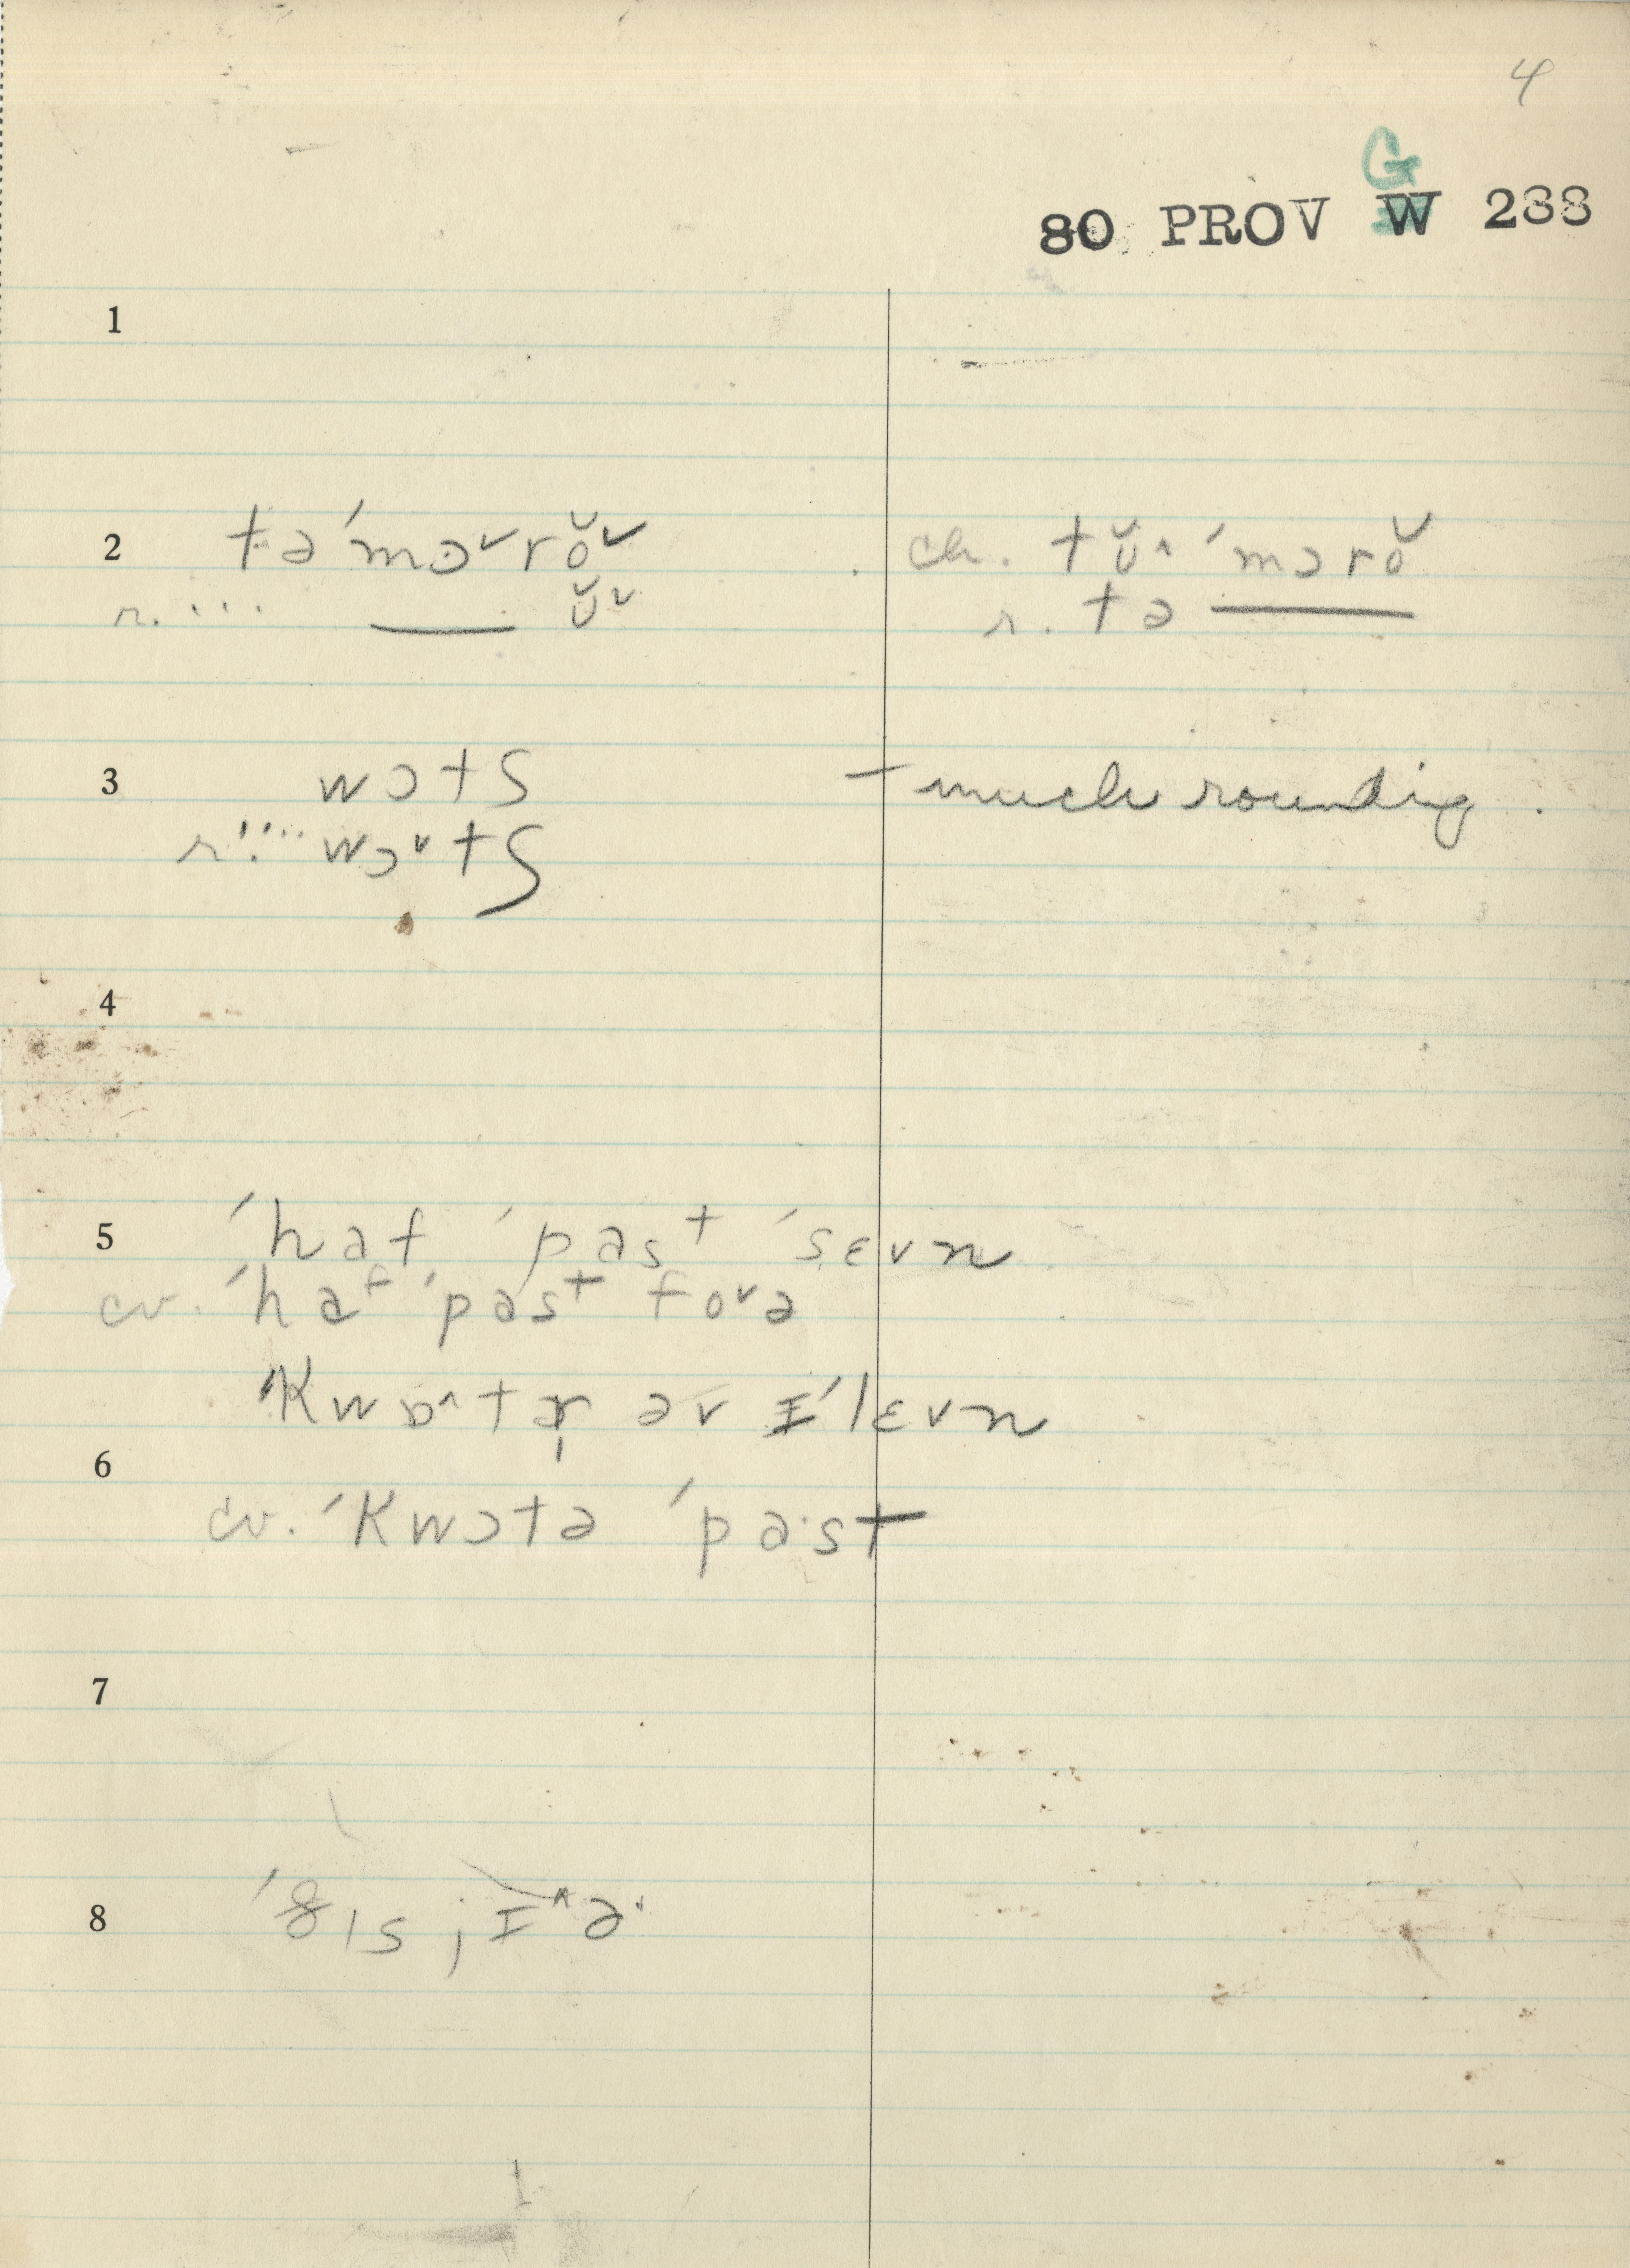 4
G
80 PROV W 288
1
2 tə ˈmɔ˅rŏ˅ ch. tʊ̆^ ˈmɔrŏ
r. ... ___ ʊ̆˅ r. tə ___
3 wɔtʃ – much rounding.
r. ... wɔ˅tʃ
4
5 ˈhaf ˈpast ˈsɛvn
cv. ˈhaf ˈpast fo˅ə
ˈKwɒ^tə əv ɪˈlɛvn
6
cv. ˈKwɔtə ˈpa·st
7
8